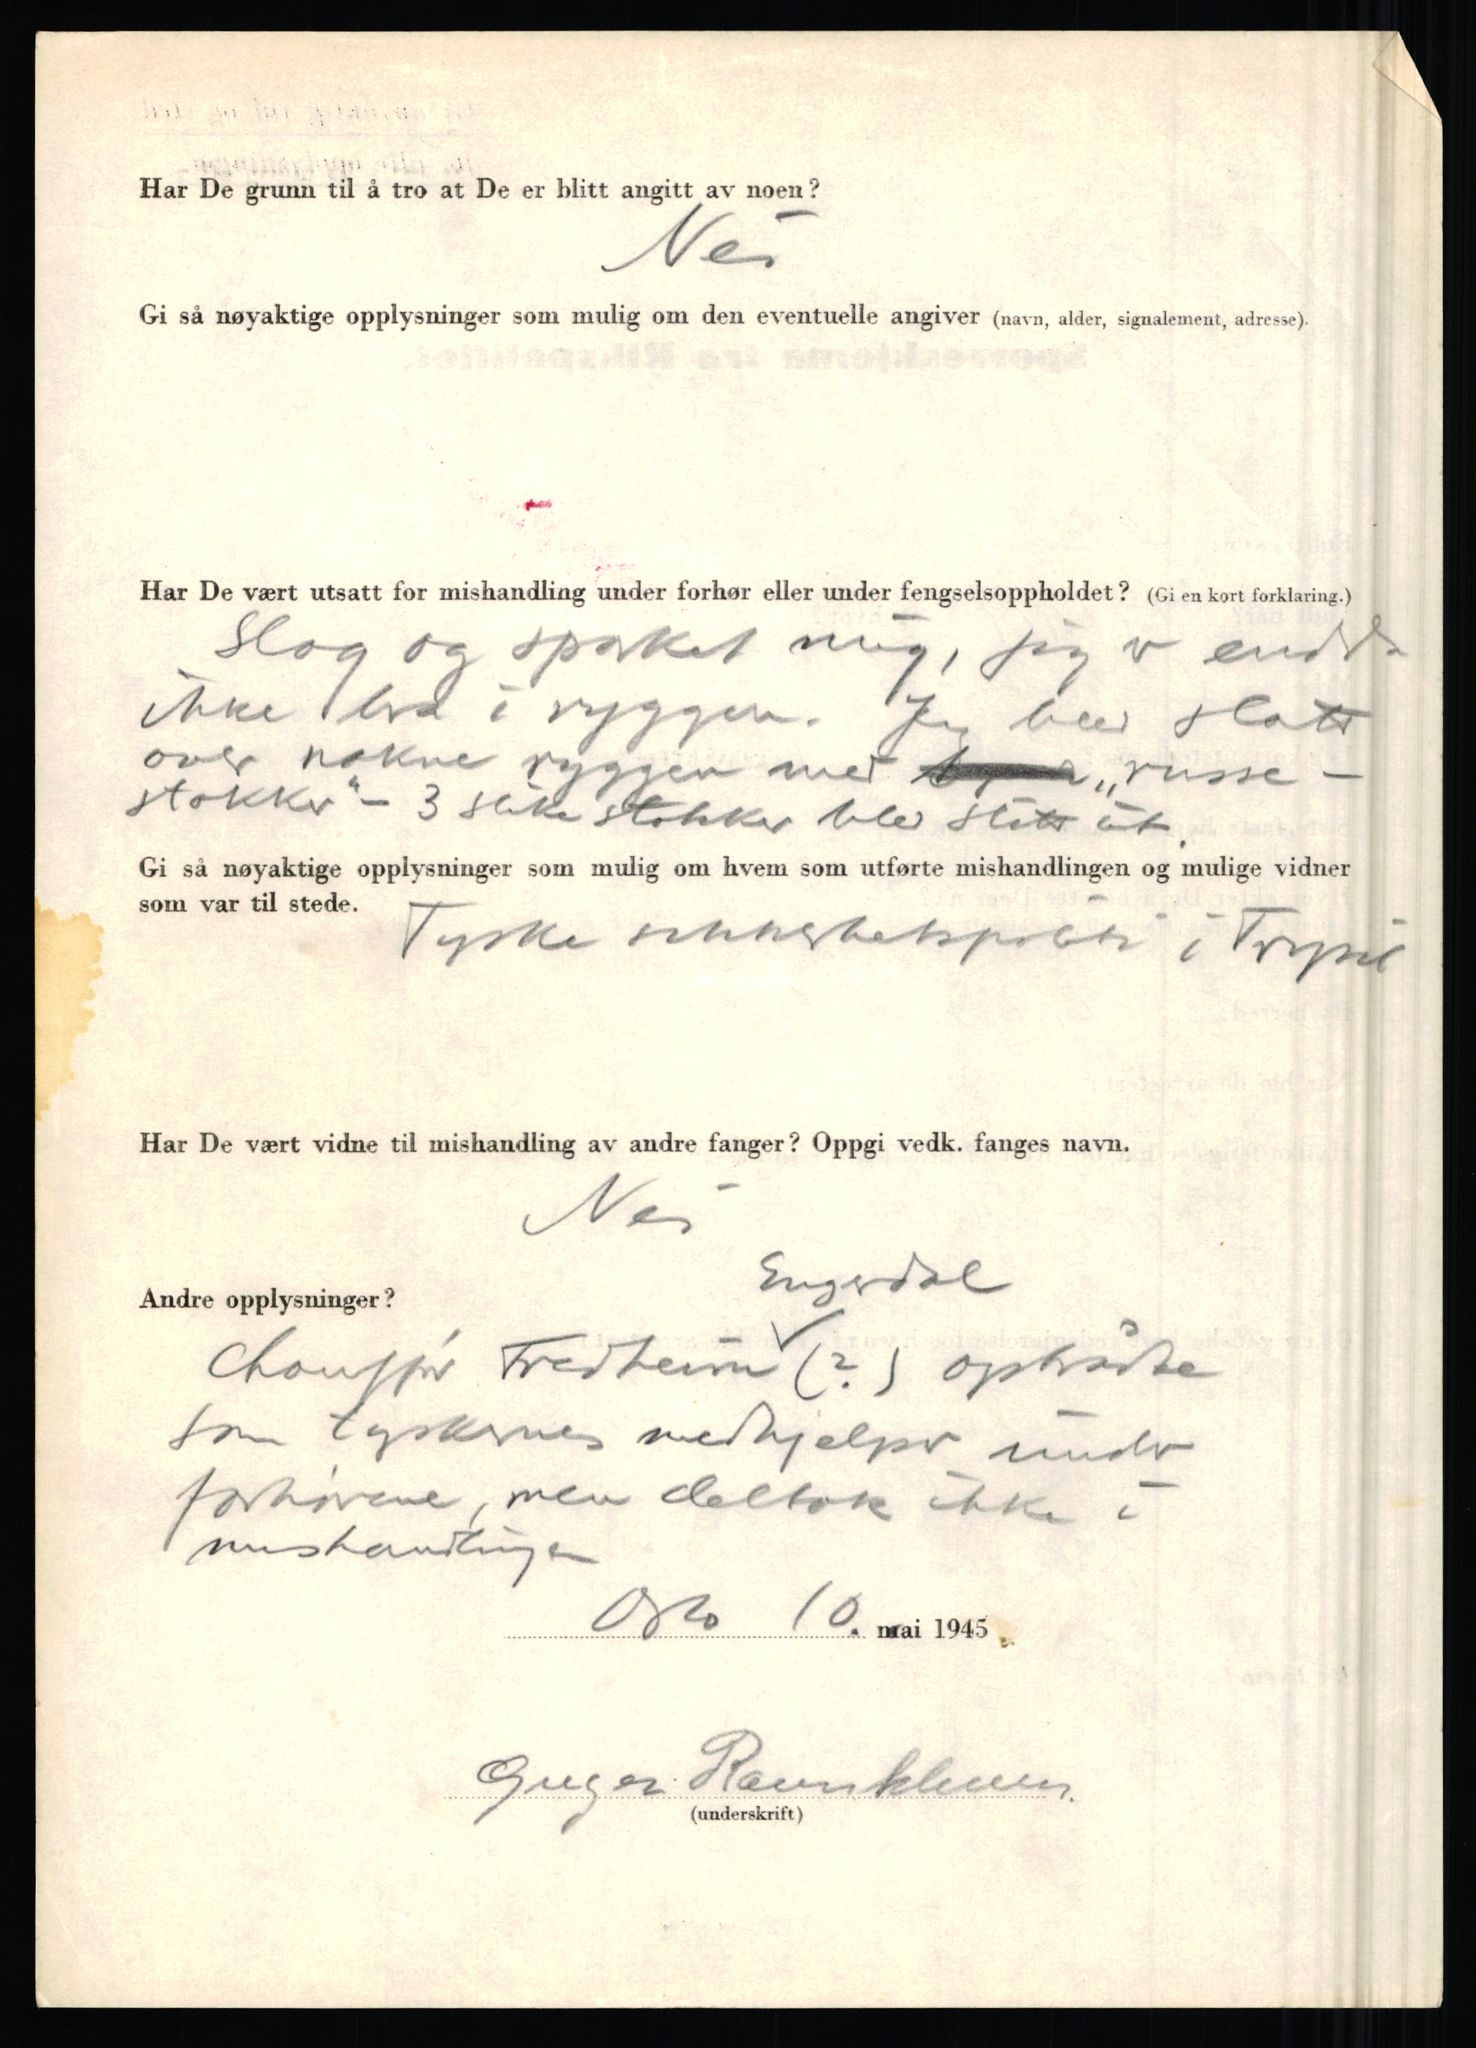 Har De grunn til å tro at De er blitt angitt av noen?
Nei
Gi så nøyaktige opplysninger som mulig om den eventuelle angiver (navn, alder, signalement, adresse).
Har De vært utsatt for mishandling under forhør eller under fengselsoppholdet? (Gi en kort forklaring.)
Slog og sparket mig, jeg er endda
ikke bra i ryggen. Jeg blev slått
over nakne ryggen med „russe-
stokker" - 3 slike stokker blev slitt ut.
Gi så nøyaktige opplysninger som mulig om hvem som utførte mishandlingen og mulige vidner
som var til stede.
Tyske sikkerhetspoliti i Trysil
Har De vært vidne til mishandling av andre fanger? Oppgi vedk. fanges navn.
Nei
Engerdal
Andre opplysninger?
Chauffør Fredheim (?) optrådte
som tyskernes medhjelper under
forhørene, men deltok ikke i
mishandlingen
Oslo 10. mai 1945
(underskrift)